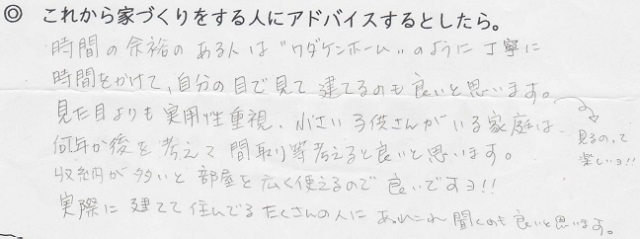 ◎ これから家づくりをする人にアドバイスするとしたら。
時間の余裕のある人は"ワダケンホーム"のように丁寧に
時間をかけて、自分の目で見て建てるのも良いと思います。
見た目よりも実用性重視、小さい子供さんがいる家庭は
何年か後を考えて間取り等考えると良いと思います。
収納が多いと部屋を広く使えるので良いですヨ!!
実際に建てて住んでるたくさんの人にあれこれ聞くのも良いと思います。
見るのって
楽しいヨ!!